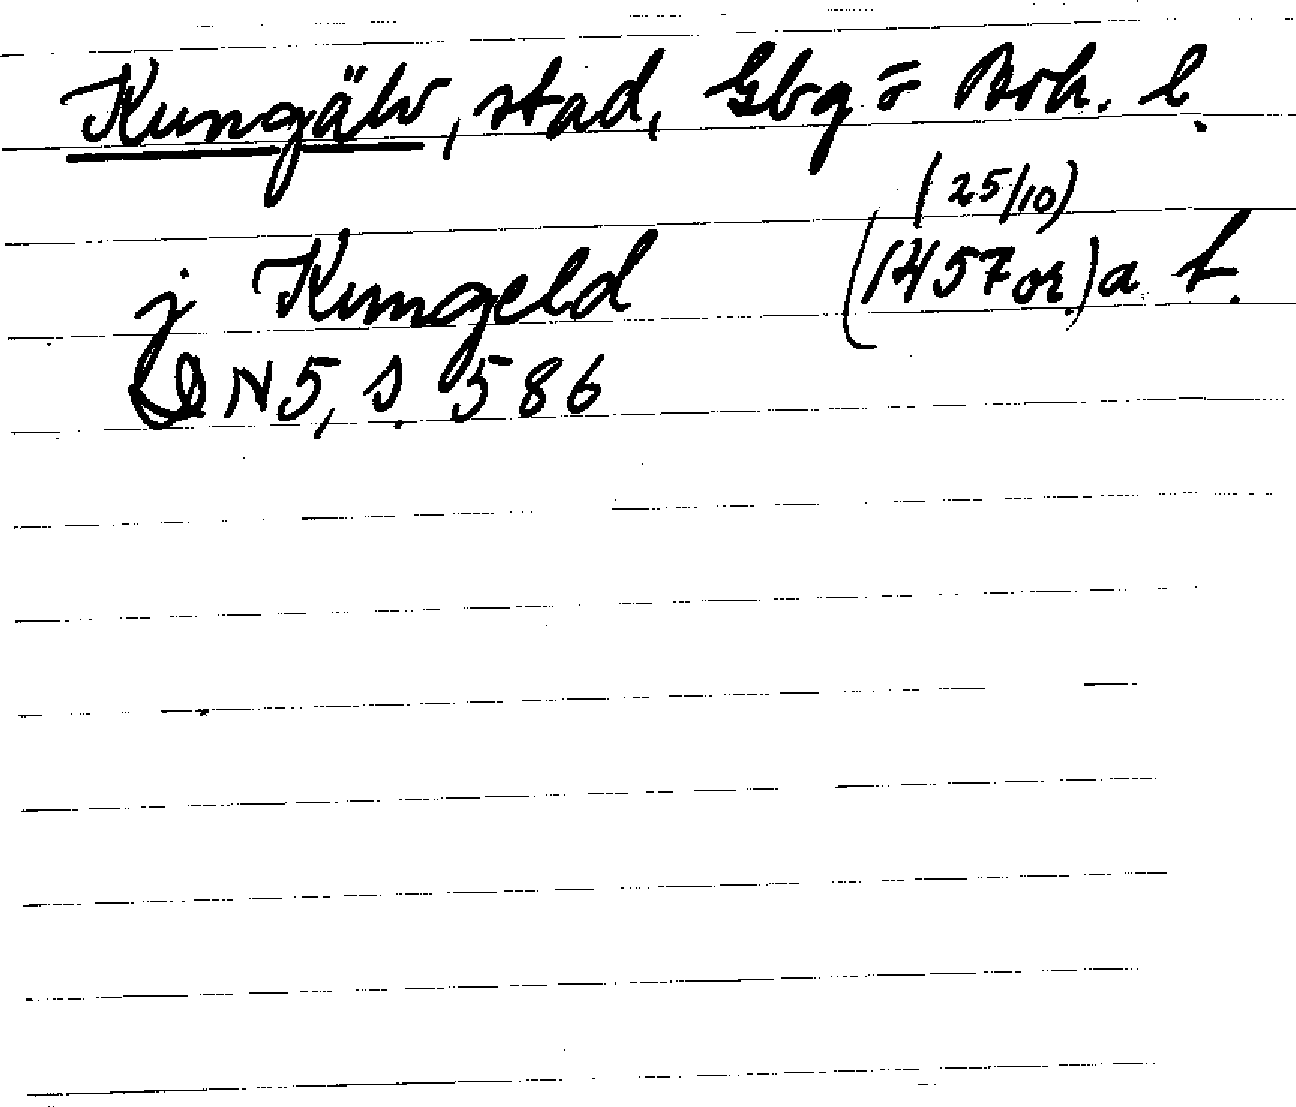 Kungälv, stad, Gbg o Boh. l.
(25/10)
j Kungeld (1457 or.) a f.
DN 5, s. 586